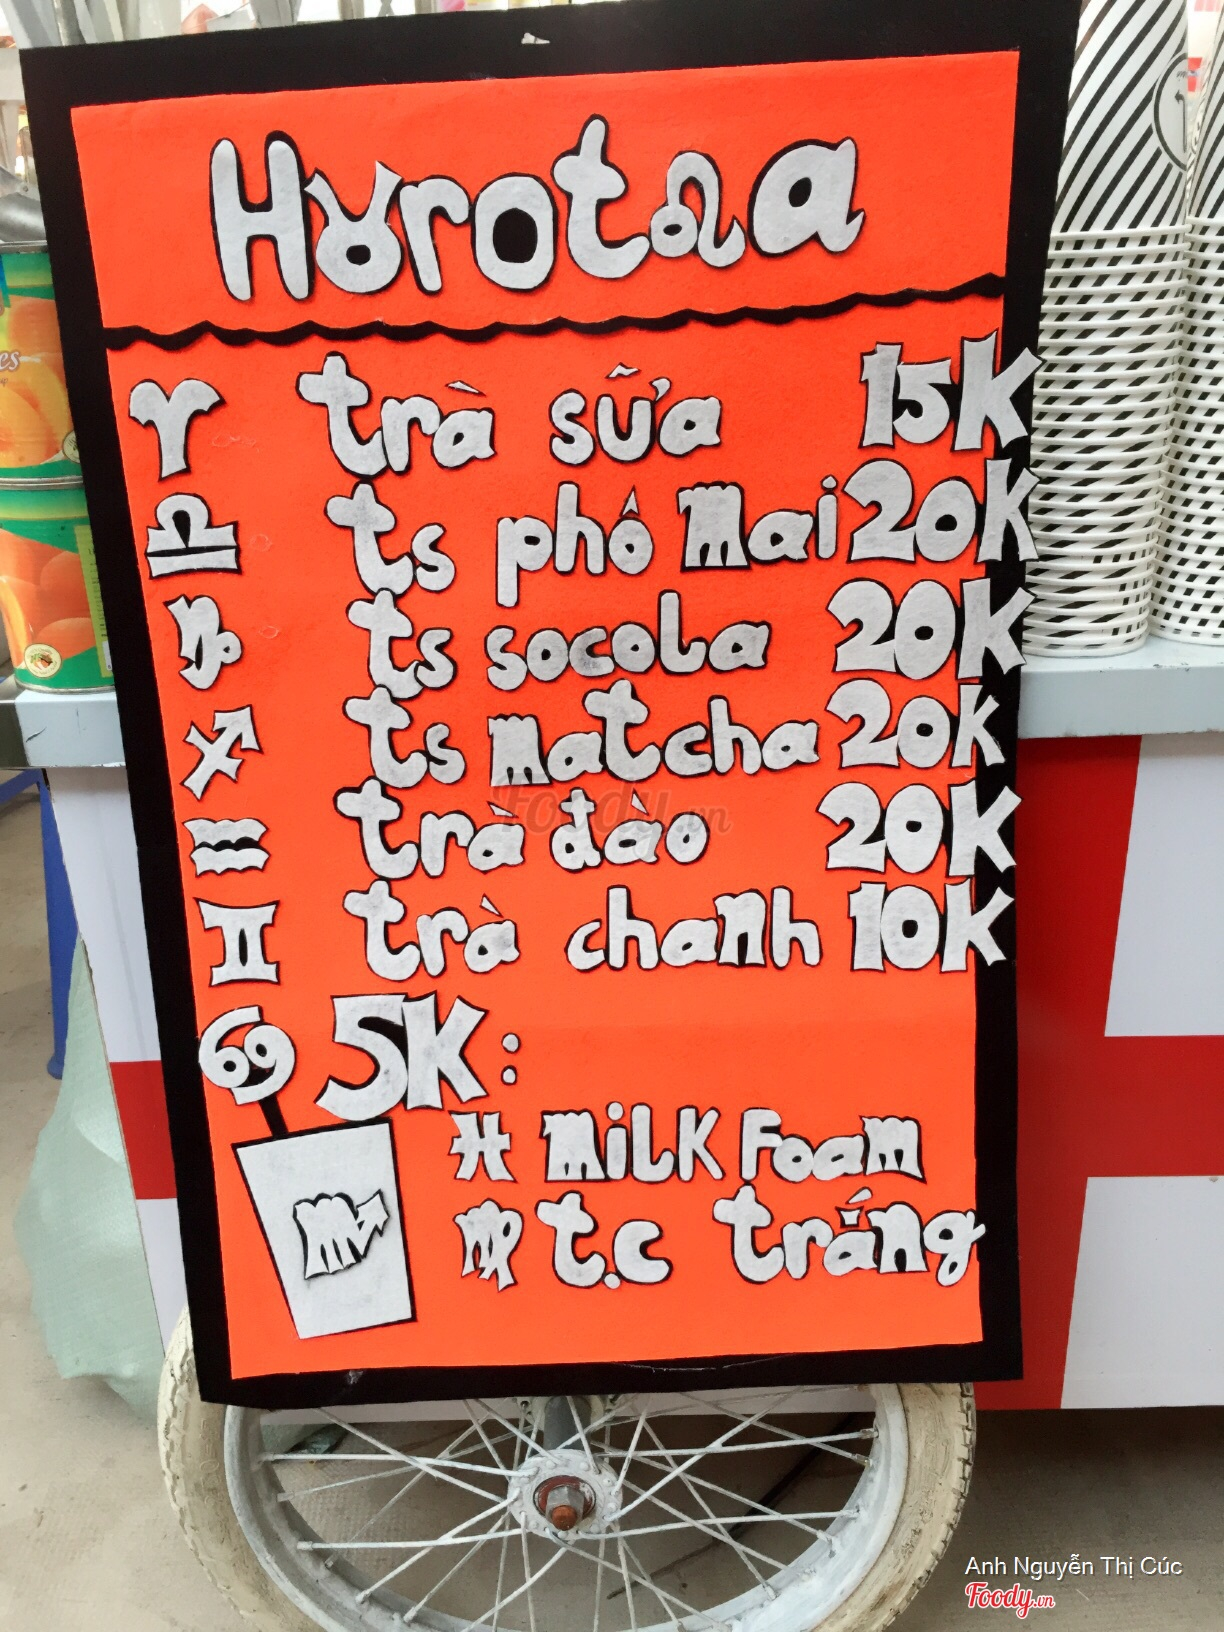 H♉rot♌a
♈ trà sữa 15K
♎ ts phô mai 20K
♑ ts socola 20K
♐ ts matcha 20K
♒ trà đào 20K
♊ trà chanh 10K
♋ 5K:
♓ MiLK Foam
♍ t.c trắng
♏
Foody.vn
Anh Nguyễn Thị Cúc
Foody.vn